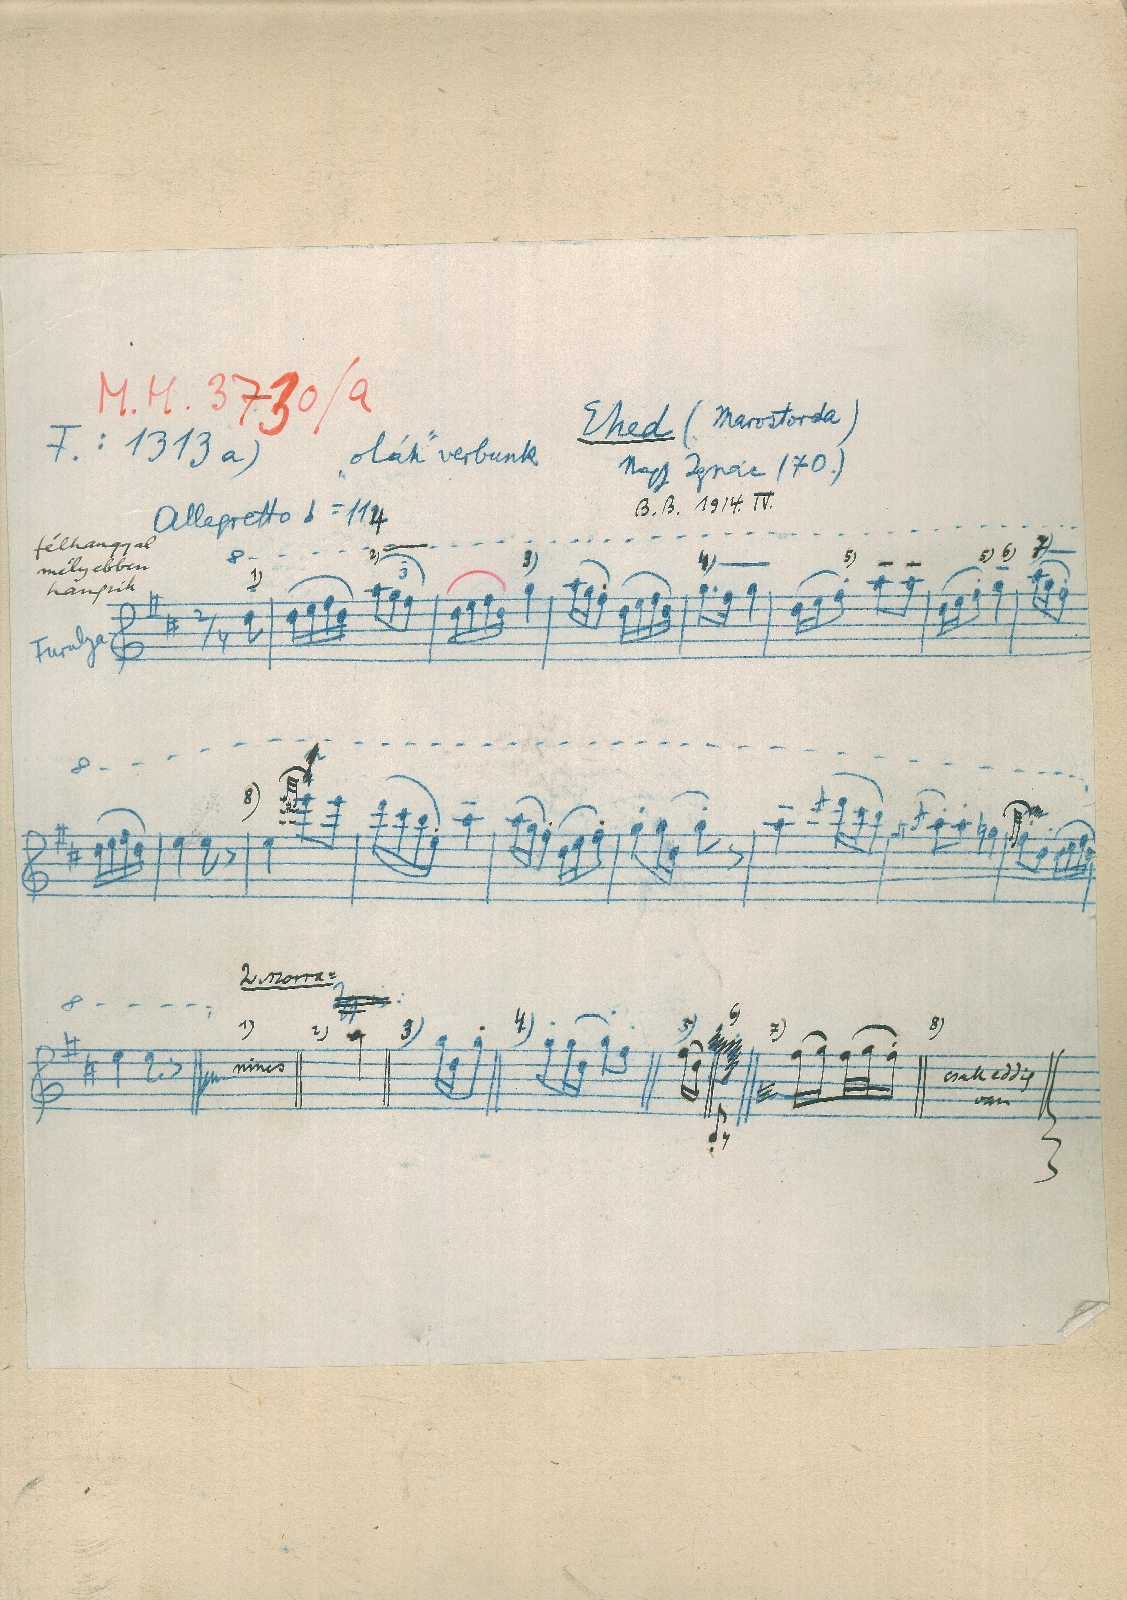 M.H. 3730/a
F.: 1313 a)
„oláh” verbunk
Ehed (Marostorda)
Nagy Ignác (70.)
B.B. 1914. IV.
Allegretto ♩ = 114
félhanggal
mélyebben
hangzik
Furulya
8
1) 2) 3) 4) 5) 5) 6) 7)
3
2/4
8
8)
2szorra=
8
1) nincs 2) 3) 4) 5) 6) 7) 8) csak eddig
van